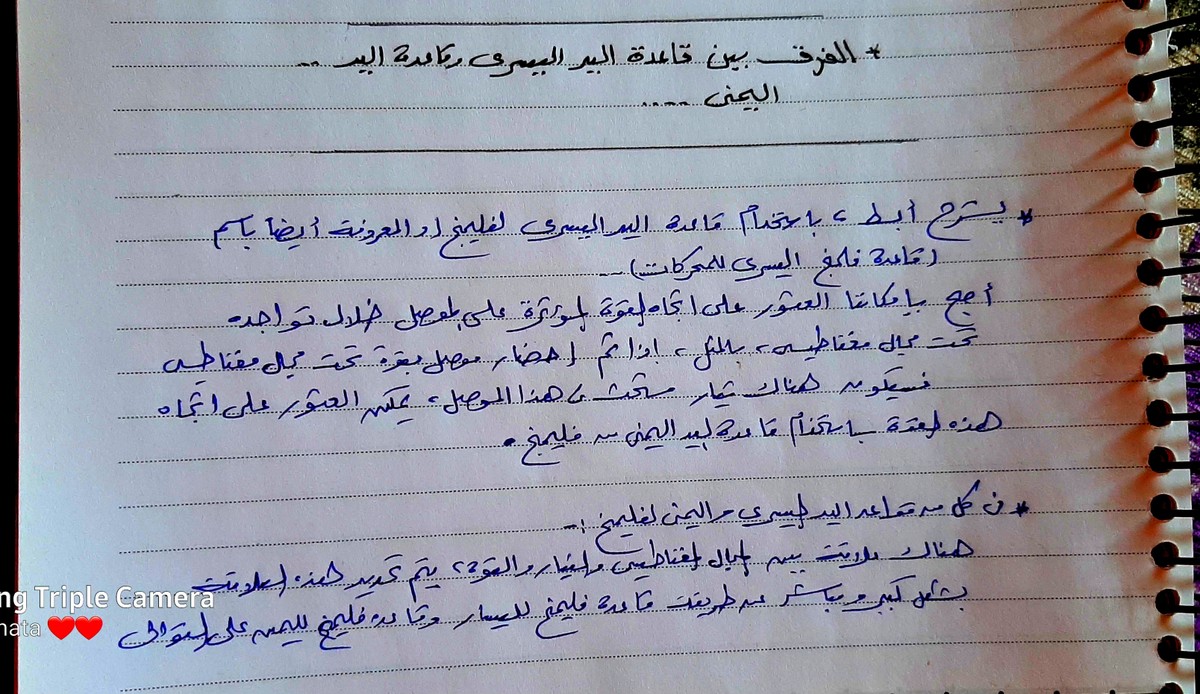 * الفرق بين قاعدة اليد اليسرى وقاعدة اليد ..
اليمنى ....
* بشرح أبسط ، باستخدام قاعدة اليد اليسرى لفليمنج (والمعروفة أيضاً باسم
(قاعدة فلمنج اليسرى للمحركات) ..
أصبح بإمكاننا العثور على اتجاه القوة المؤثرة على الموصل خلال تواجده
تحت مجال مغناطيسي ، بالمثل ، اذا تم احضار موصل بقوة تحت مجال مغناطيسي
فسيكون هناك تيار مستحث في هذا الموصل ، يمكن العثور على اتجاه
هذه القوة باستخدام قاعدة اليد اليمنى من فليمنج .
* في كل من قواعد اليد اليسرى واليمنى لفليمنج :-
هناك علاقة بين المجال المغناطيسي والتيار والقوة ، يتم تحديد هذه العلاقة
بشكل كبير ومباشر عن طريق قاعدة فليمنج لليسار وقاعدة فليمنج لليمين على التوالي
ng Triple Camera
nata ❤️❤️